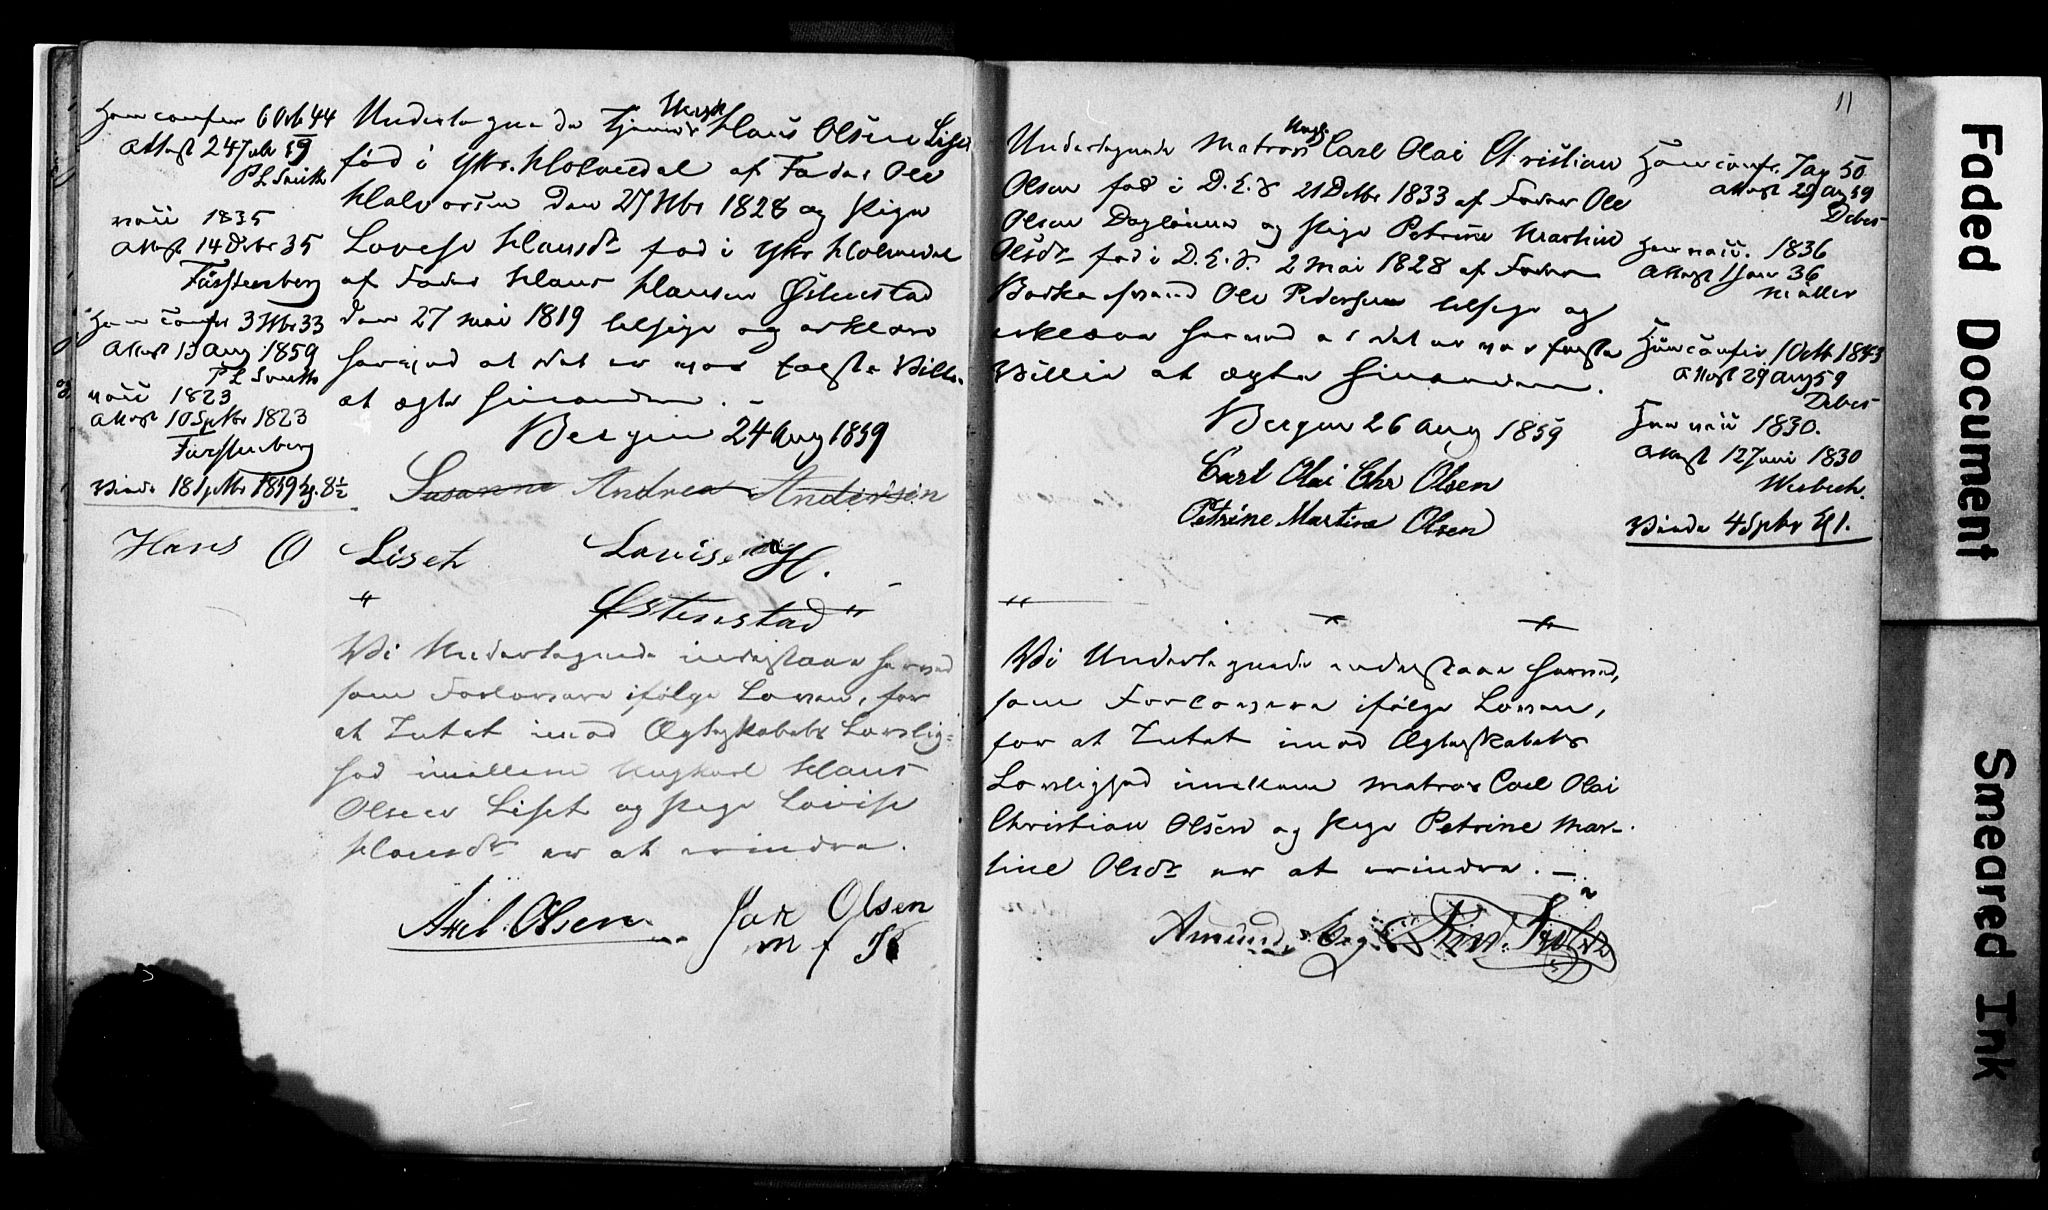 Ham confir 6 Oct 44
Attest 24 Juli 59
P L Smith
vacc 1835
Attest 14 Octbr 35
Fürstenberg
Ham Confir 3 Nbr 33
Attest 13 Aug 1859
P L Smith
vacc 1823
Attest 10 Sptbr 1823
Fürstenberg
Viede 18 Sptbr 1859 Kl. 8½
Ungk
Undertegnede Tjener Hans Olsen Liset
fød i Ytre Holmedal af Fader Ole
Halvorsen den 27 Nbr 1828 og Pige
Lovise Hansdr fød i Ytre Holmedal
af Fader Hans Hansen Østenstad
den 27 Mai 1819 tilsige og erklære
herved at det er vor faste Villie
at ægte hinanden.
Bergen 24 Aug 1859
Susanne Andrea Andersen
Hans O Liset Lovise H.
" Østenstad "
Vi Undertegnede indestaae herved
som Forlovere ifølge Loven, for
at Intet imod Ægteskabets Lovlig=
hed imellem Ungkarl Hans
Olsen Liset og Pige Lovise
Hansdr er at erindre.
Axel. Olsen. Joh Olsen
m f P
11
Ungk.
Undertegnede Matros Carl Olai Christian
Olsen fød i D. E. S. 21 Detbr 1833 af Fader Ole
Olsen Dagleiner og Pige Petrine Martine
Olsdr fød i D. E. S. 2 Mai 1828 af Fader
Ole Pedersen tilsige og
erklære herved at det er vor faste
Villie at ægte hinanden.
Bergen 26 Aug 1859
Carl Olai Chr Olsen
Petrine Martine Olsen
Ham confr. 7 Ap 50
Attest 29 Aug 59
Debes
Ham vacc. 1836
Attest 1 Jan 36
Møller
Hun confir. 1 Octb 1843
Attest 29 Aug 59
Debes
Hun vacc 1830.
Attest 12 Juni 1830
Wisbech.
Viede 4 Sptbr Kl 1.
"
Vi Undertegnede indestaae herved,
som Forlovere ifølge Loven,
for at Intet imod Ægteskabets
Lovlighed imellem Matros Carl Olai
Christian Olsen og Pige Petrine Mar=
tine Olsdr er at erindre. —
Amund
Faded Document
Smeared Ink